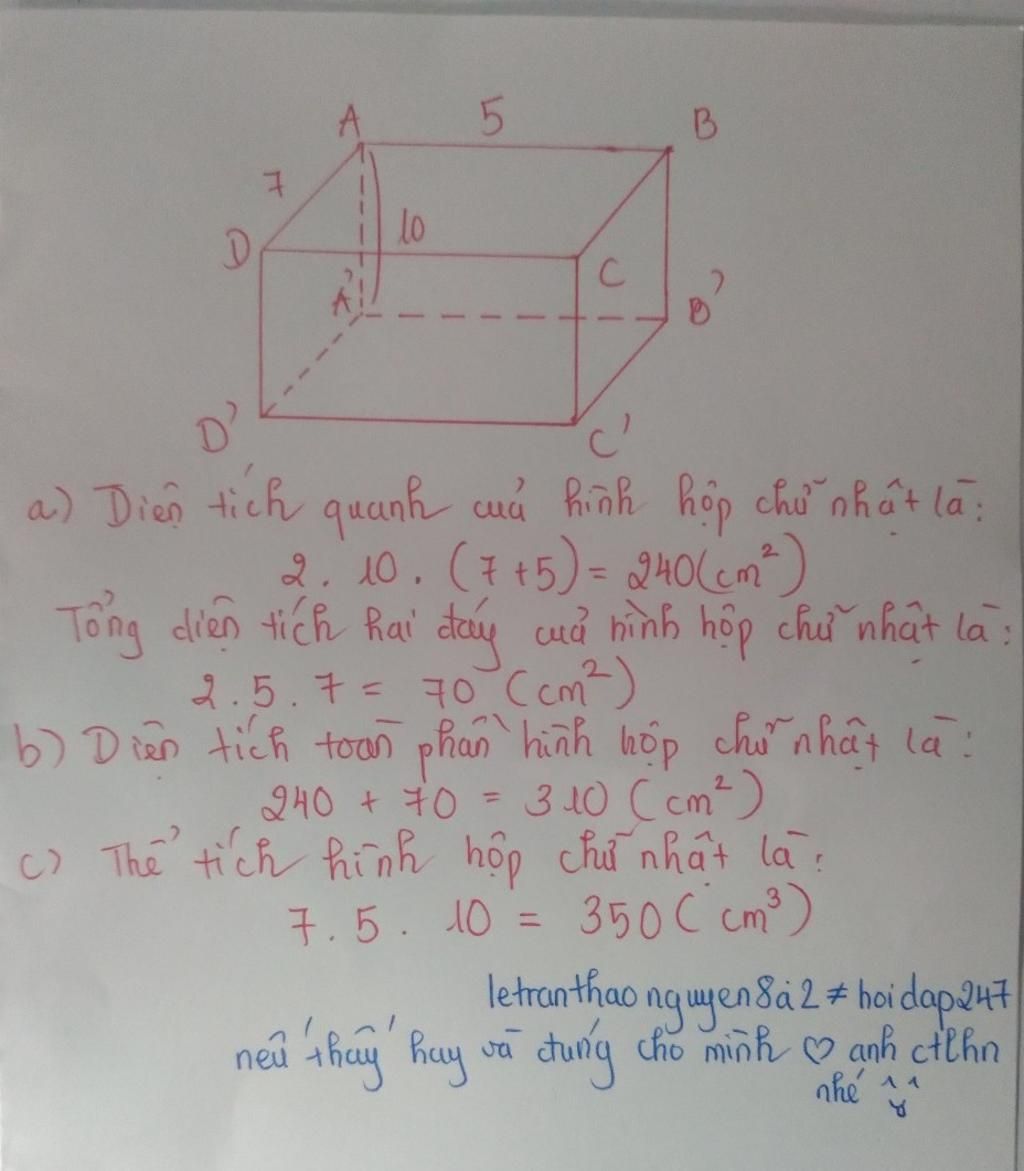 A 5 B
7
D 10 C
A' B'
D' C'
a) Diện tích quanh cuả hình hộp chữ nhật là:
2. 10. (7+5) = 240(cm²)
Tổng diện tích hai đáy cuả hình hộp chữ nhật là:
2.5.7 = 70 (cm²)
b) Diện tích toàn phần hình hộp chữ nhật là:
240 + 70 = 310 (cm²)
c) Thể tích hình hộp chữ nhật là:
7.5. 10 = 350 (cm³)
letranthaonguyen8a2 ≠ hoidap247
nếu thấy hay và đúng cho mình ♡ anh ctlhn
nhé ^^